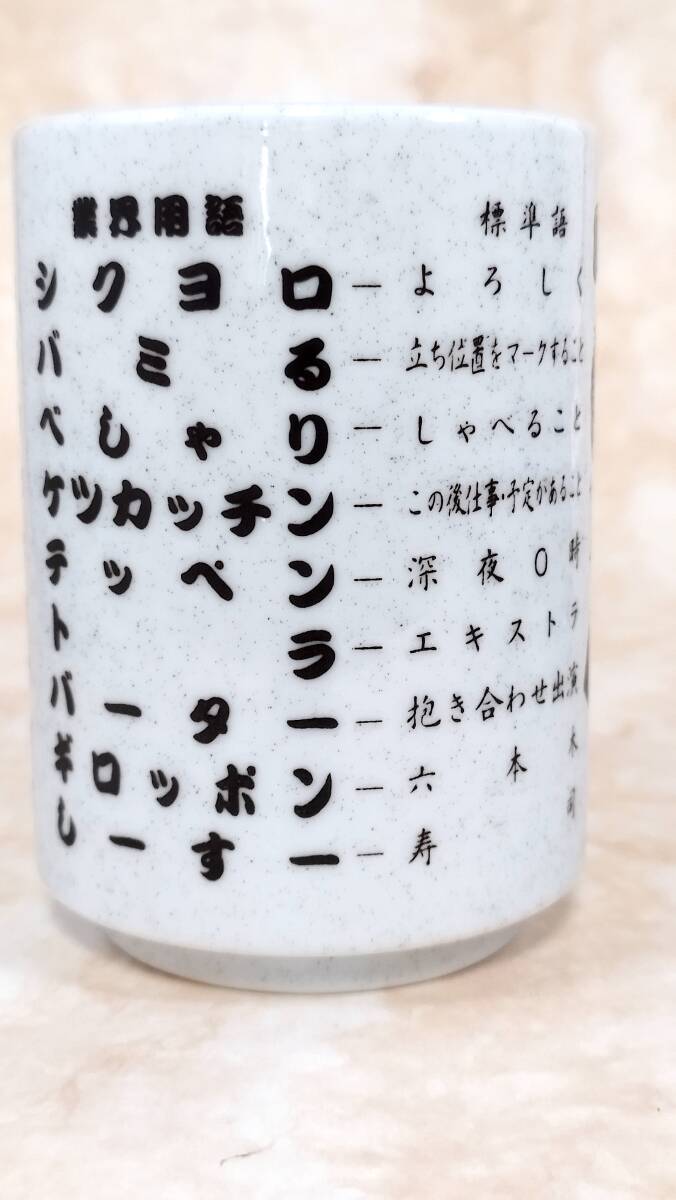 業界用語 標準語
シクヨロ ― よろしく
バミる ― 立ち位置をマークすること
べしゃり ― しゃべること
ケツカッチン ― この後仕事・予定があること
テッペン ― 深夜0時
トラ ― エキストラ
バーター ― 抱き合わせ出演
ギロッポン ― 六本木
しーすー ― 寿司